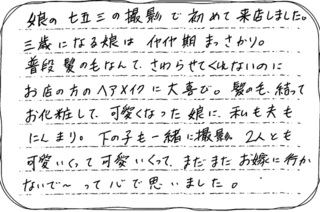 娘の七五三の撮影で初めて来店しました。
三歳になる娘は イヤイヤ期 まっさかり。
普段 髪の毛なんて、さわらせてくれないのに
お店の方のヘアメイクに大喜び。髪の毛、結って
お化粧して、可愛くなった娘に、私も夫も
にんまり。下の子も一緒に撮影 2人とも
可愛いくって可愛いくって、まだまだお嫁に行か
ないで〜って心で思いました。